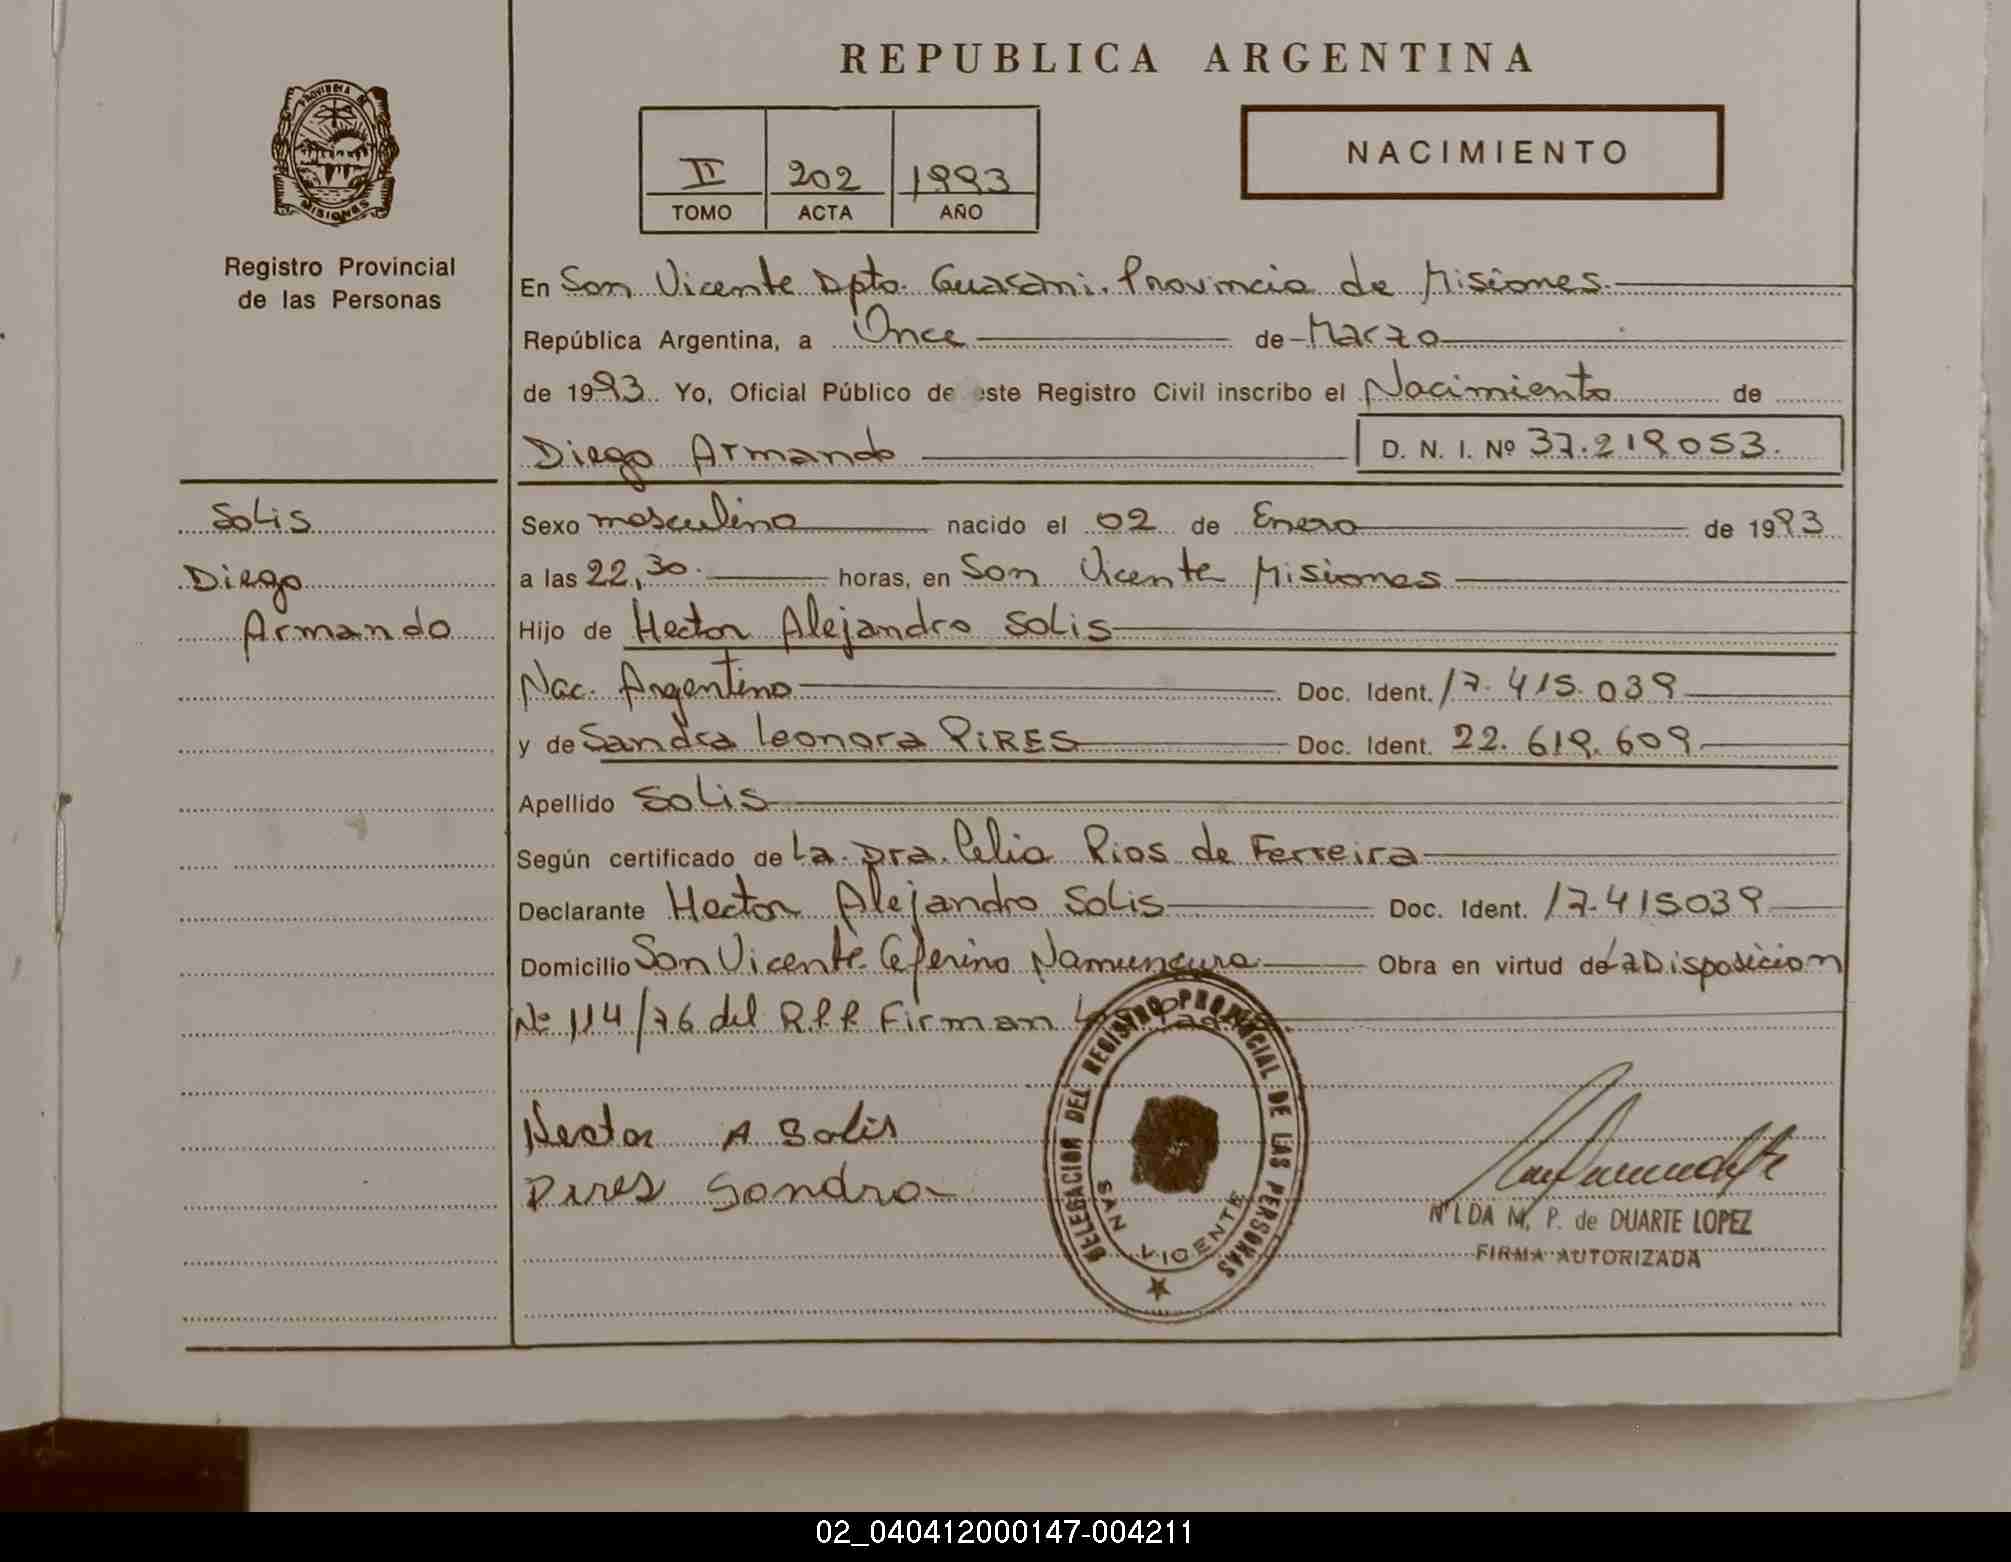 REPUBLICA ARGENTINA
PROVINCIA DE
MISIONES
Registro Provincial
de las Personas
II 202 1993
TOMO ACTA AÑO
NACIMIENTO
En San Vicente Dpto. Guarani. Provincia de Misiones.
República Argentina, a Once de Marzo
de 1993 Yo, Oficial Público de este Registro Civil inscribo el Nacimiento de
Diego Armando D. N. I. Nº 37.219053.
Solis
Diego
Armando
Sexo masculino nacido el 02 de Enero de 1993
a las 22,30. horas, en San Vicente Misiones
Hijo de Hector Alejandro Solis
Nac. Argentino Doc. Ident. 17.415.039
y de Sandra Leonora PIRES Doc. Ident. 22.619.609
Apellido Solis
Según certificado de La Dra. Celia Rios de Ferreira
Declarante Hector Alejandro Solis Doc. Ident. 17.415039
Domicilio San Vicente Ceferino Namuncura Obra en virtud de La Disposicion
Nº 114/76 del R.P.P. Firman
Hector A Solis
Pires Sandra
DELEGACION DEL REGISTRO PROVINCIAL DE LAS PERSONAS
SAN VICENTE
NILDA M. P. de DUARTE LOPEZ
FIRMA AUTORIZADA
02_040412000147-004211